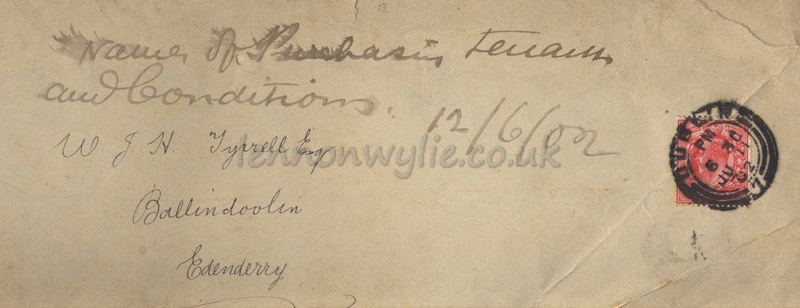 Names of Purchasing Tenants
and Conditions.
12/6/02
W J H Tyrrell Esq
Ballindoolin
Edenderry
lennonwylie.co.uk
DUBLIN